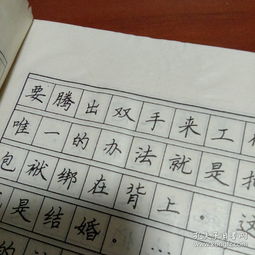 要腾出双手来工
唯一的办法就是把
包袱绑在背上。这
是结婚。……
的